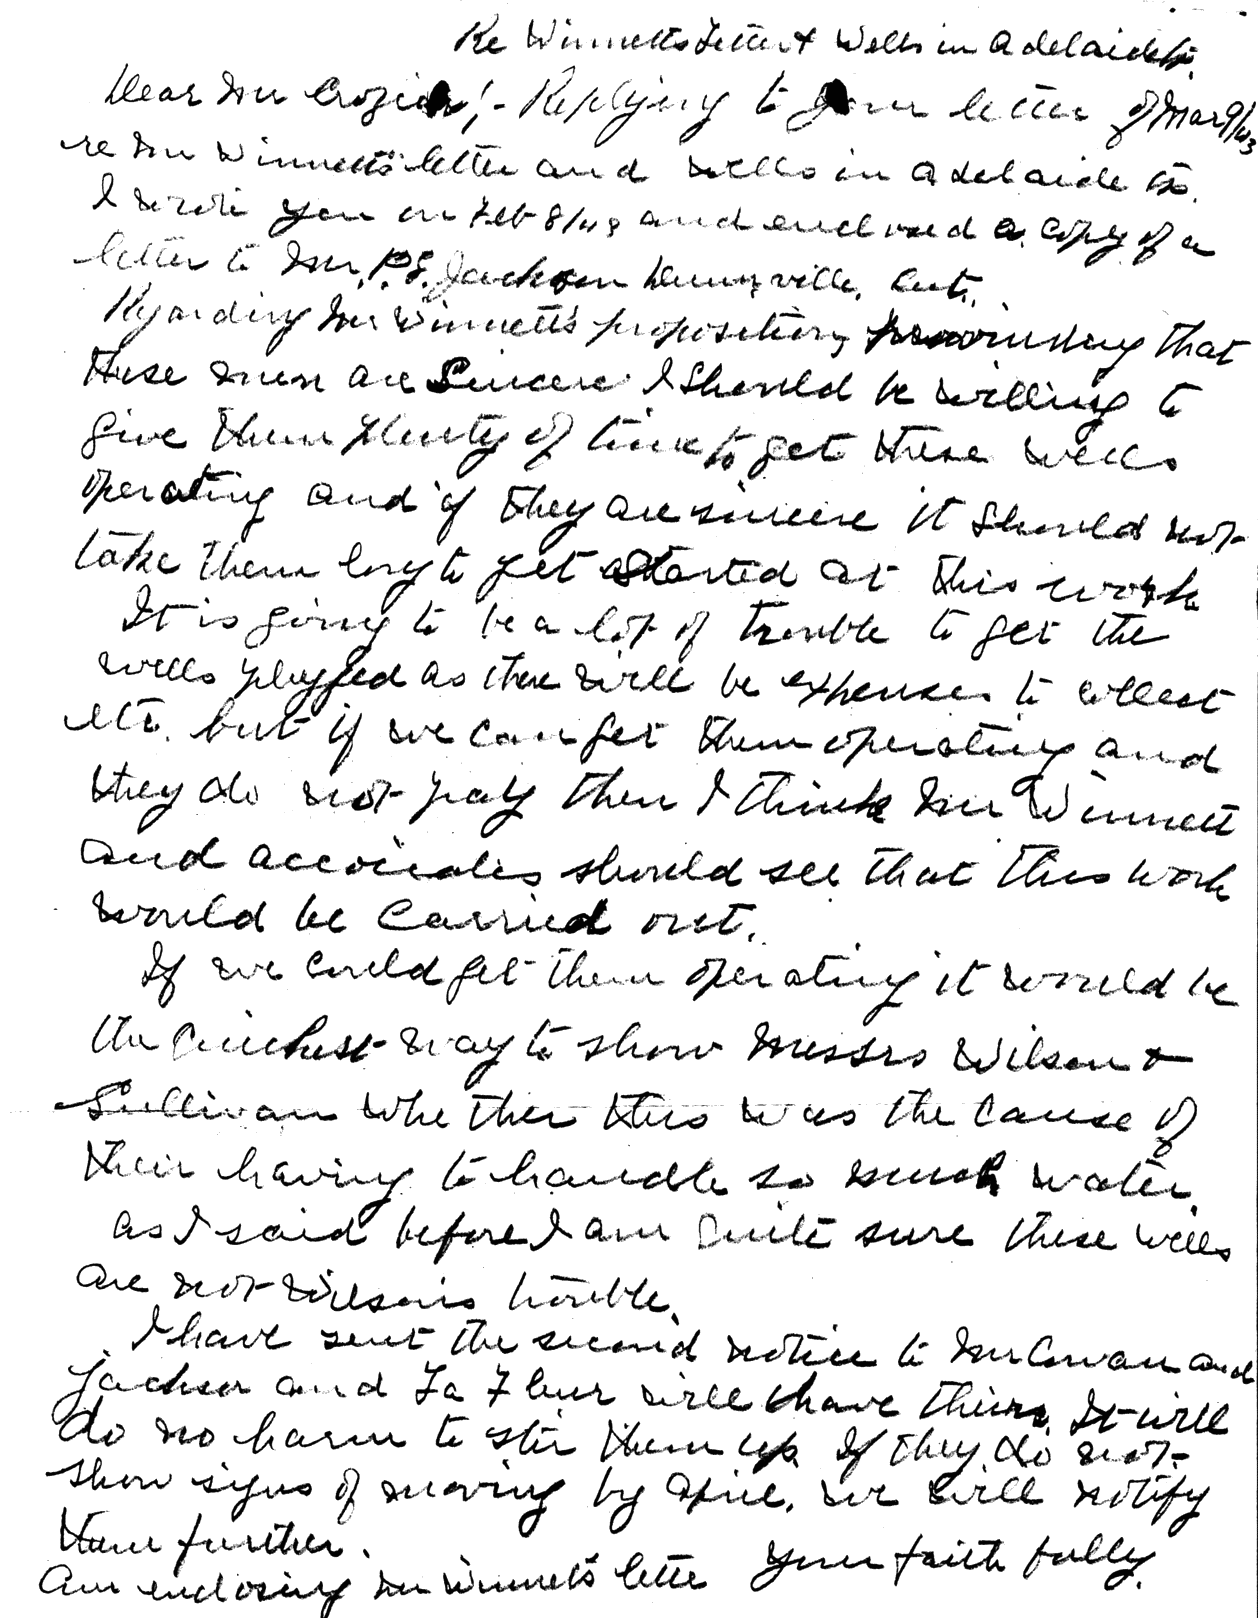 Re Winnetts Letter & Wells in Adelaide Tp.
Dear Mr Crozier; - Replying to your letter of Mar 9/43
re Mr Winnetts' letter and wells in Adelaide Tp.
I wrote you on Feb 8/43 and enclosed a copy of a
letter to Mr. P.S. Jackson Dunnville. Ont.
Regarding Mr Winnett's proposition, providing that
these men are Sincere I should be willing to
give them plenty of time to get these wells
operating and if they are sincere it should not
take them long to get started at this work
It is going to be a lot of trouble to get the
wells plugged as there will be expenses to collect
etc. but if we can get them operating and
they do not pay then I think Mr Winnett
and associates should see that this work
would be carried out.
If we could get them operating it would be
the quickest way to show Messrs Wilson &
Sullivan whether this was the cause of
their having to handle so much water.
as I said before I am quite sure these wells
are not Wilson's trouble.
I have sent the second notice to Mr Cowan and
Jackson and La Fleur will have theirs. It will
do no harm to stir them up. If they do not
show signs of moving by April. we will notify
them further.
Am enclosing Mr Winnett's letter Your faithfully.